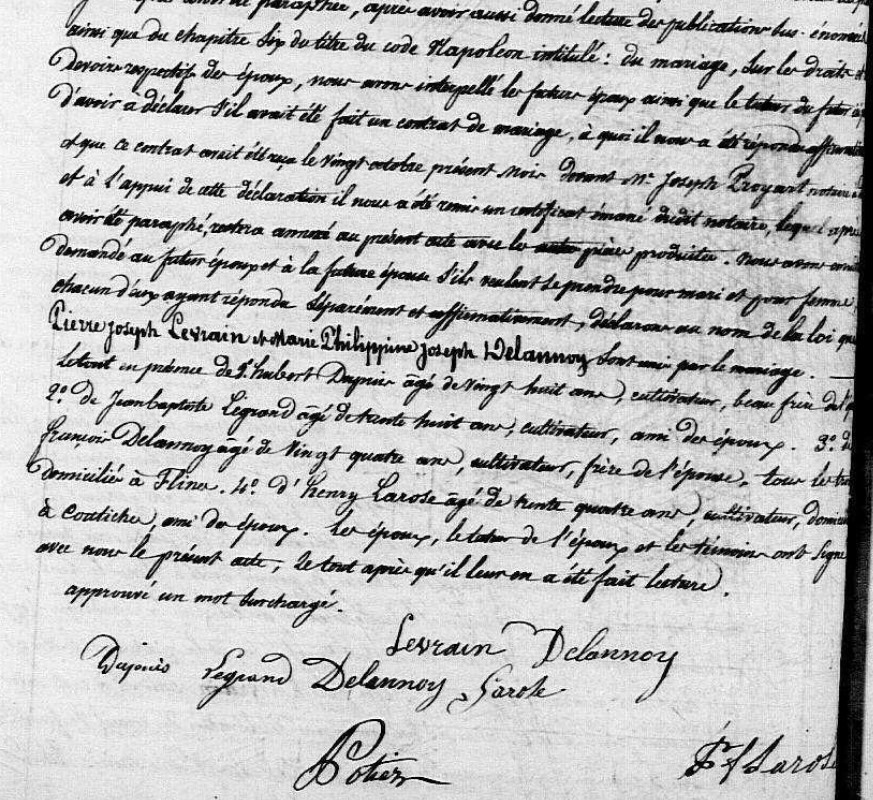 de parapher, après avoir aussi donné lecture des publications sus. énoncé
ainsi que du chapitre six du titre du code Napoléon intitulé : du mariage, Sur les droits et
Devoirs respectifs des époux, nous avons interpellé les futurs époux ainsi que le tuteur du futur
D'avoir à déclarer S'il avait été fait un contrat de mariage, à quoi il nous a été répondu affirmati
et que ce contrat avait été reçu le vingt octobre présent mois devant Mr. Joseph Proyart notaire
et à l'appui de cette déclaration il nous a été remis un certificat émané dudit notaire, lequel après
avoir été paraphé, restera annexé au présent acte avec les pièces produites. Nous avons
demandé au futur époux et à la future épouse S'ils veulent se prendre pour mari et pour femme,
chacun d'eux ayant répondu Séparément et affirmativement, déclarons au nom de la loi que
Pierre Joseph Levrain et Marie Philippine Joseph Delannoy Sont unis par le mariage.
Le tout en présence de 1.° hubert Dupuis âgé de vingt huit ans, cultivateur, beau frère de l'
2.° de Jean baptiste Legrand âgé de trente huit ans, cultivateur, ami des époux. 3.° de
françois Delannoy âgé de Vingt quatre ans, cultivateur, frère de l'épouse, tous les trois
domiciliés à Flines. 4.° d'henry Larose âgé de trente quatre ans, cultivateur, domici
à Coutiches, ami des époux. Les époux, le tuteur de l'époux et les témoins ont Signé
avec nous le présent acte, le tout après qu'il leur en a été fait lecture.
approuvé un mot Surchargé.
Levrain Delannoy
Dupuis Legrand Delannoy Larose
Potiez
Larose